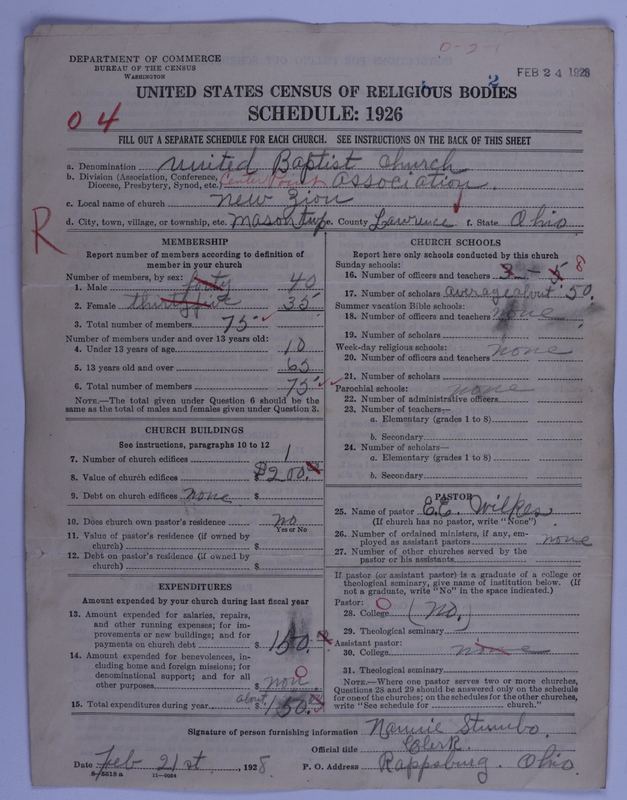 0-2-1
DEPARTMENT OF COMMERCE
BUREAU OF THE CENSUS
WASHINGTON
FEB 24 1928
2
UNITED STATES CENSUS OF RELIGIOUS BODIES
SCHEDULE: 1926
0 4
FILL OUT A SEPARATE SCHEDULE FOR EACH CHURCH. SEE INSTRUCTIONS ON THE BACK OF THIS SHEET
a. Denomination United Baptist Church
b. Division (Association, Conference, Diocese, Presbytery, Synod, etc.) Center Point Association.
c. Local name of church New Zion
d. City, town, village, or township, etc. Mason twp e. County Lawrence f. State Ohio
R
MEMBERSHIP
Report number of members according to definition of member in your church
Number of members, by sex:
1. Male forty 40
2. Female thirty five 35
3. Total number of members 75
Number of members under and over 13 years old:
4. Under 13 years of age 10
5. 13 years old and over 65
6. Total number of members 75
NOTE.—The total given under Question 6 should be the same as the total of males and females given under Question 3.
CHURCH BUILDINGS
See instructions, paragraphs 10 to 12
7. Number of church edifices 1
8. Value of church edifices $200.
9. Debt on church edifices none $
10. Does church own pastor's residence no
Yes or No
11. Value of pastor's residence (if owned by church) $
12. Debt on pastor's residence (if owned by church) $
EXPENDITURES
Amount expended by your church during last fiscal year
13. Amount expended for salaries, repairs, and other running expenses; for improvements or new buildings; and for payments on church debt $ 150.
14. Amount expended for benevolences, including home and foreign missions; for denominational support; and for all other purposes $ non 0
15. Total expenditures during year about $ 150.
CHURCH SCHOOLS
Report here only schools conducted by this church
Sunday schools:
16. Number of officers and teachers 3 - 5 8
17. Number of scholars average about 50.
Summer vacation Bible schools:
18. Number of officers and teachers none
19. Number of scholars
Week-day religious schools:
20. Number of officers and teachers none
21. Number of scholars
Parochial schools: none
22. Number of administrative officers
23. Number of teachers—
a. Elementary (grades 1 to 8)
b. Secondary
24. Number of scholars—
a. Elementary (grades 1 to 8)
b. Secondary
PASTOR
25. Name of pastor E.E. Wilkes
(If church has no pastor, write "None")
26. Number of ordained ministers, if any, employed as assistant pastors none
27. Number of other churches served by the pastor or his assistants
If pastor (or assistant pastor) is a graduate of a college or theological seminary, give name of institution below. (If not a graduate, write "No" in the space indicated.)
Pastor:
28. College 0 (No.)
29. Theological seminary
Assistant pastor:
30. College none
31. Theological seminary
NOTE.—Where one pastor serves two or more churches, Questions 28 and 29 should be answered only on the schedule for one of the churches; on the schedules for the other churches, write "See schedule for church."
Signature of person furnishing information Nannie Stumbo
Official title Clerk.
Date Feb 21st, 1928 P. O. Address Rappsburg. Ohio.
8-5518 a 11-9034